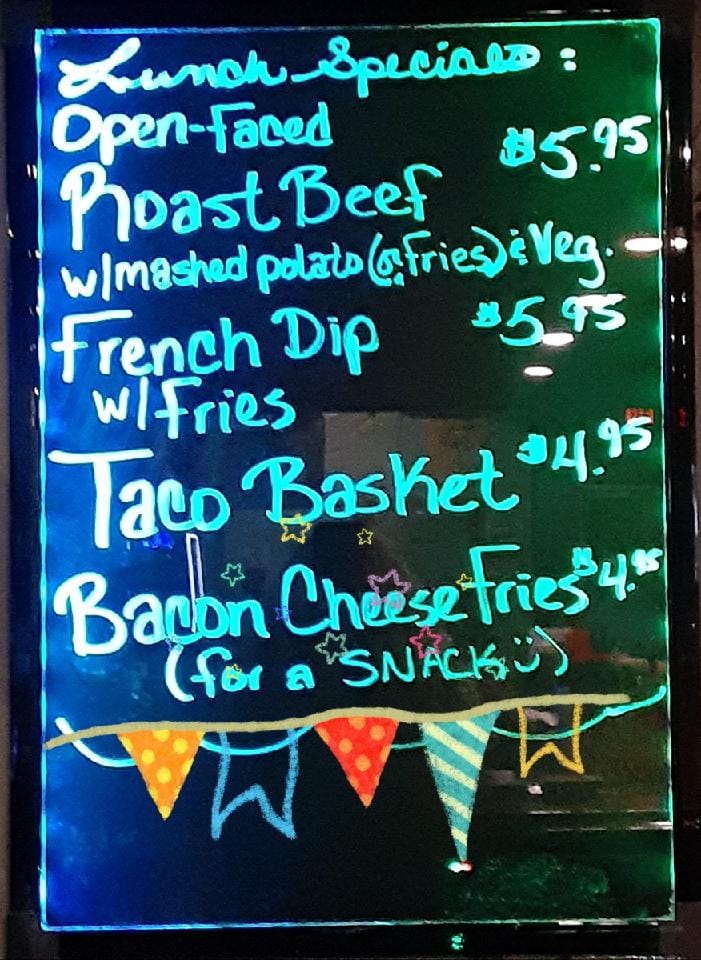 Lunch Specials:
Open-Faced $5.95
Roast Beef
w/mashed potato (or fries) & Veg.
French Dip $5.95
w/Fries
Taco Basket $4.95
Bacon Cheese Fries $4.95
(for a SNACK ü)